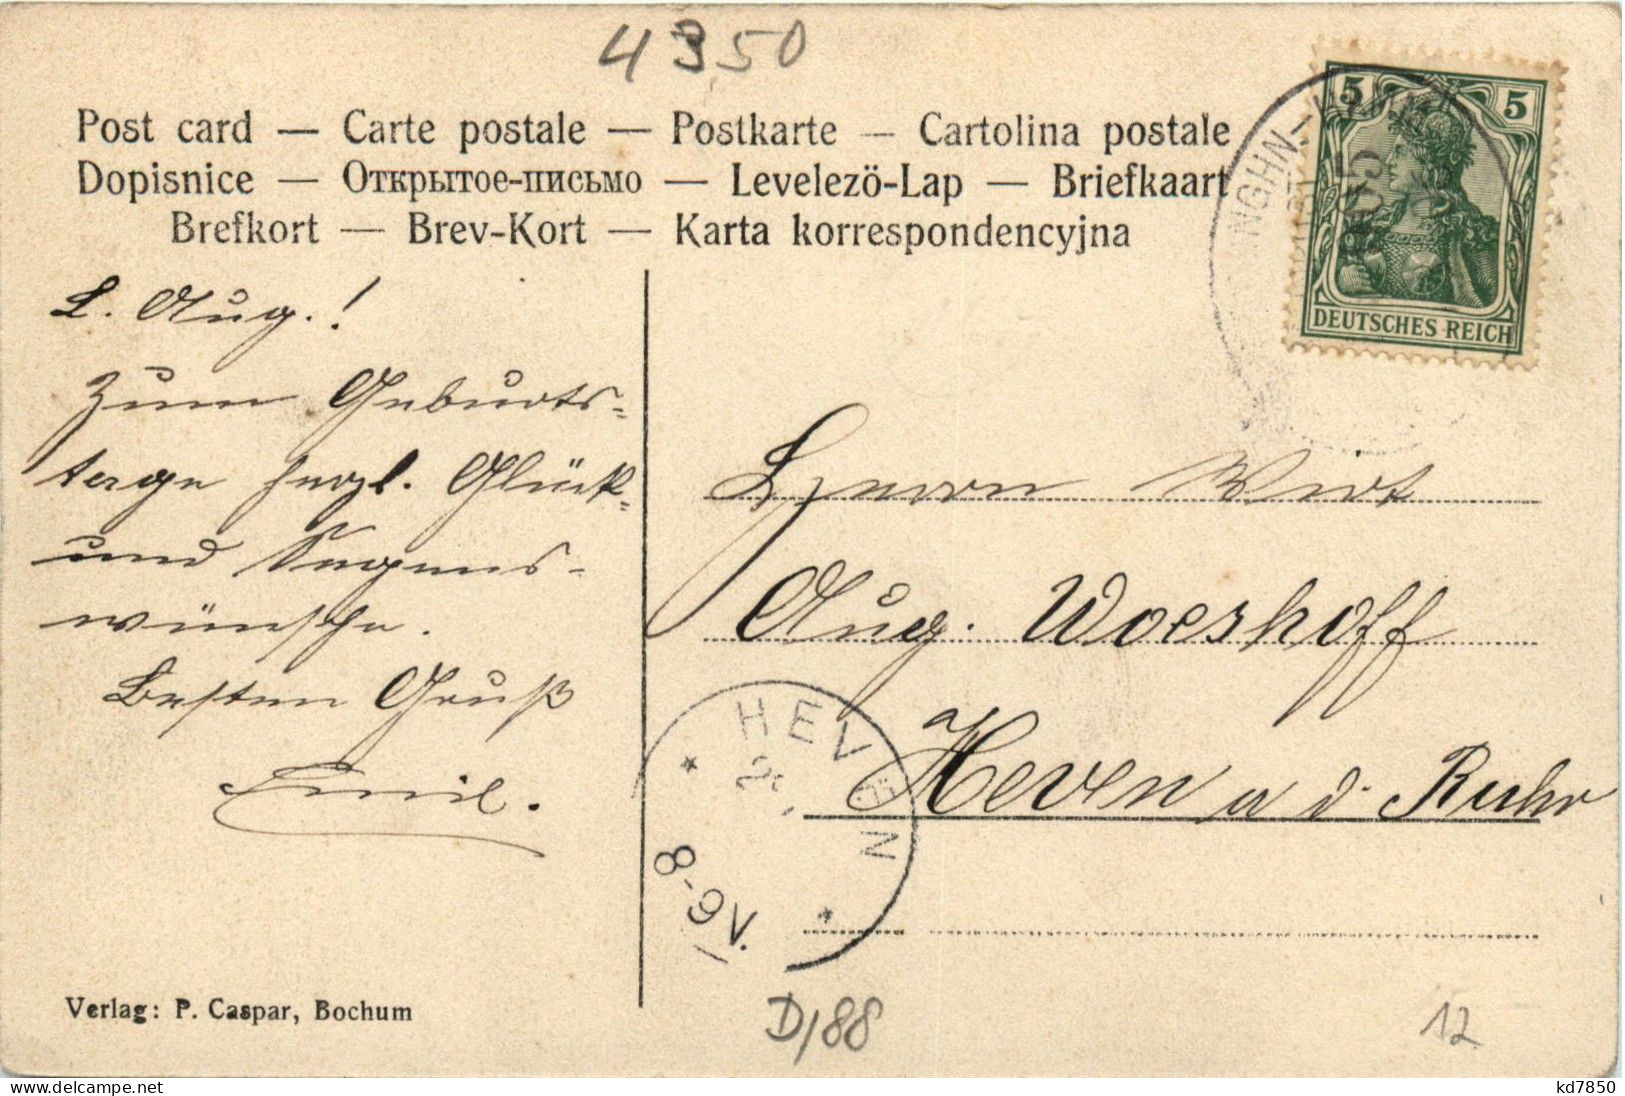 4350
Post card — Carte postale — Postkarte — Cartolina postale
Dopisnice — Открытое-письмо — Levelezö-Lap — Briefkaart
Brefkort — Brev-Kort — Karta korrespondencyjna
5 5
DEUTSCHES REICH
NGHN-
L. Aug.!
Zum Geburts-
tage herzl. Glück-
und Segens-
wünsche.
Besten Gruß
Emil.
Herrn Wirt
Aug. Woeshoff
Heven a d. Ruhr
HEVEN
8-9V.
Verlag: P. Caspar, Bochum
D/88
12
www.delcampe.net
kd7850